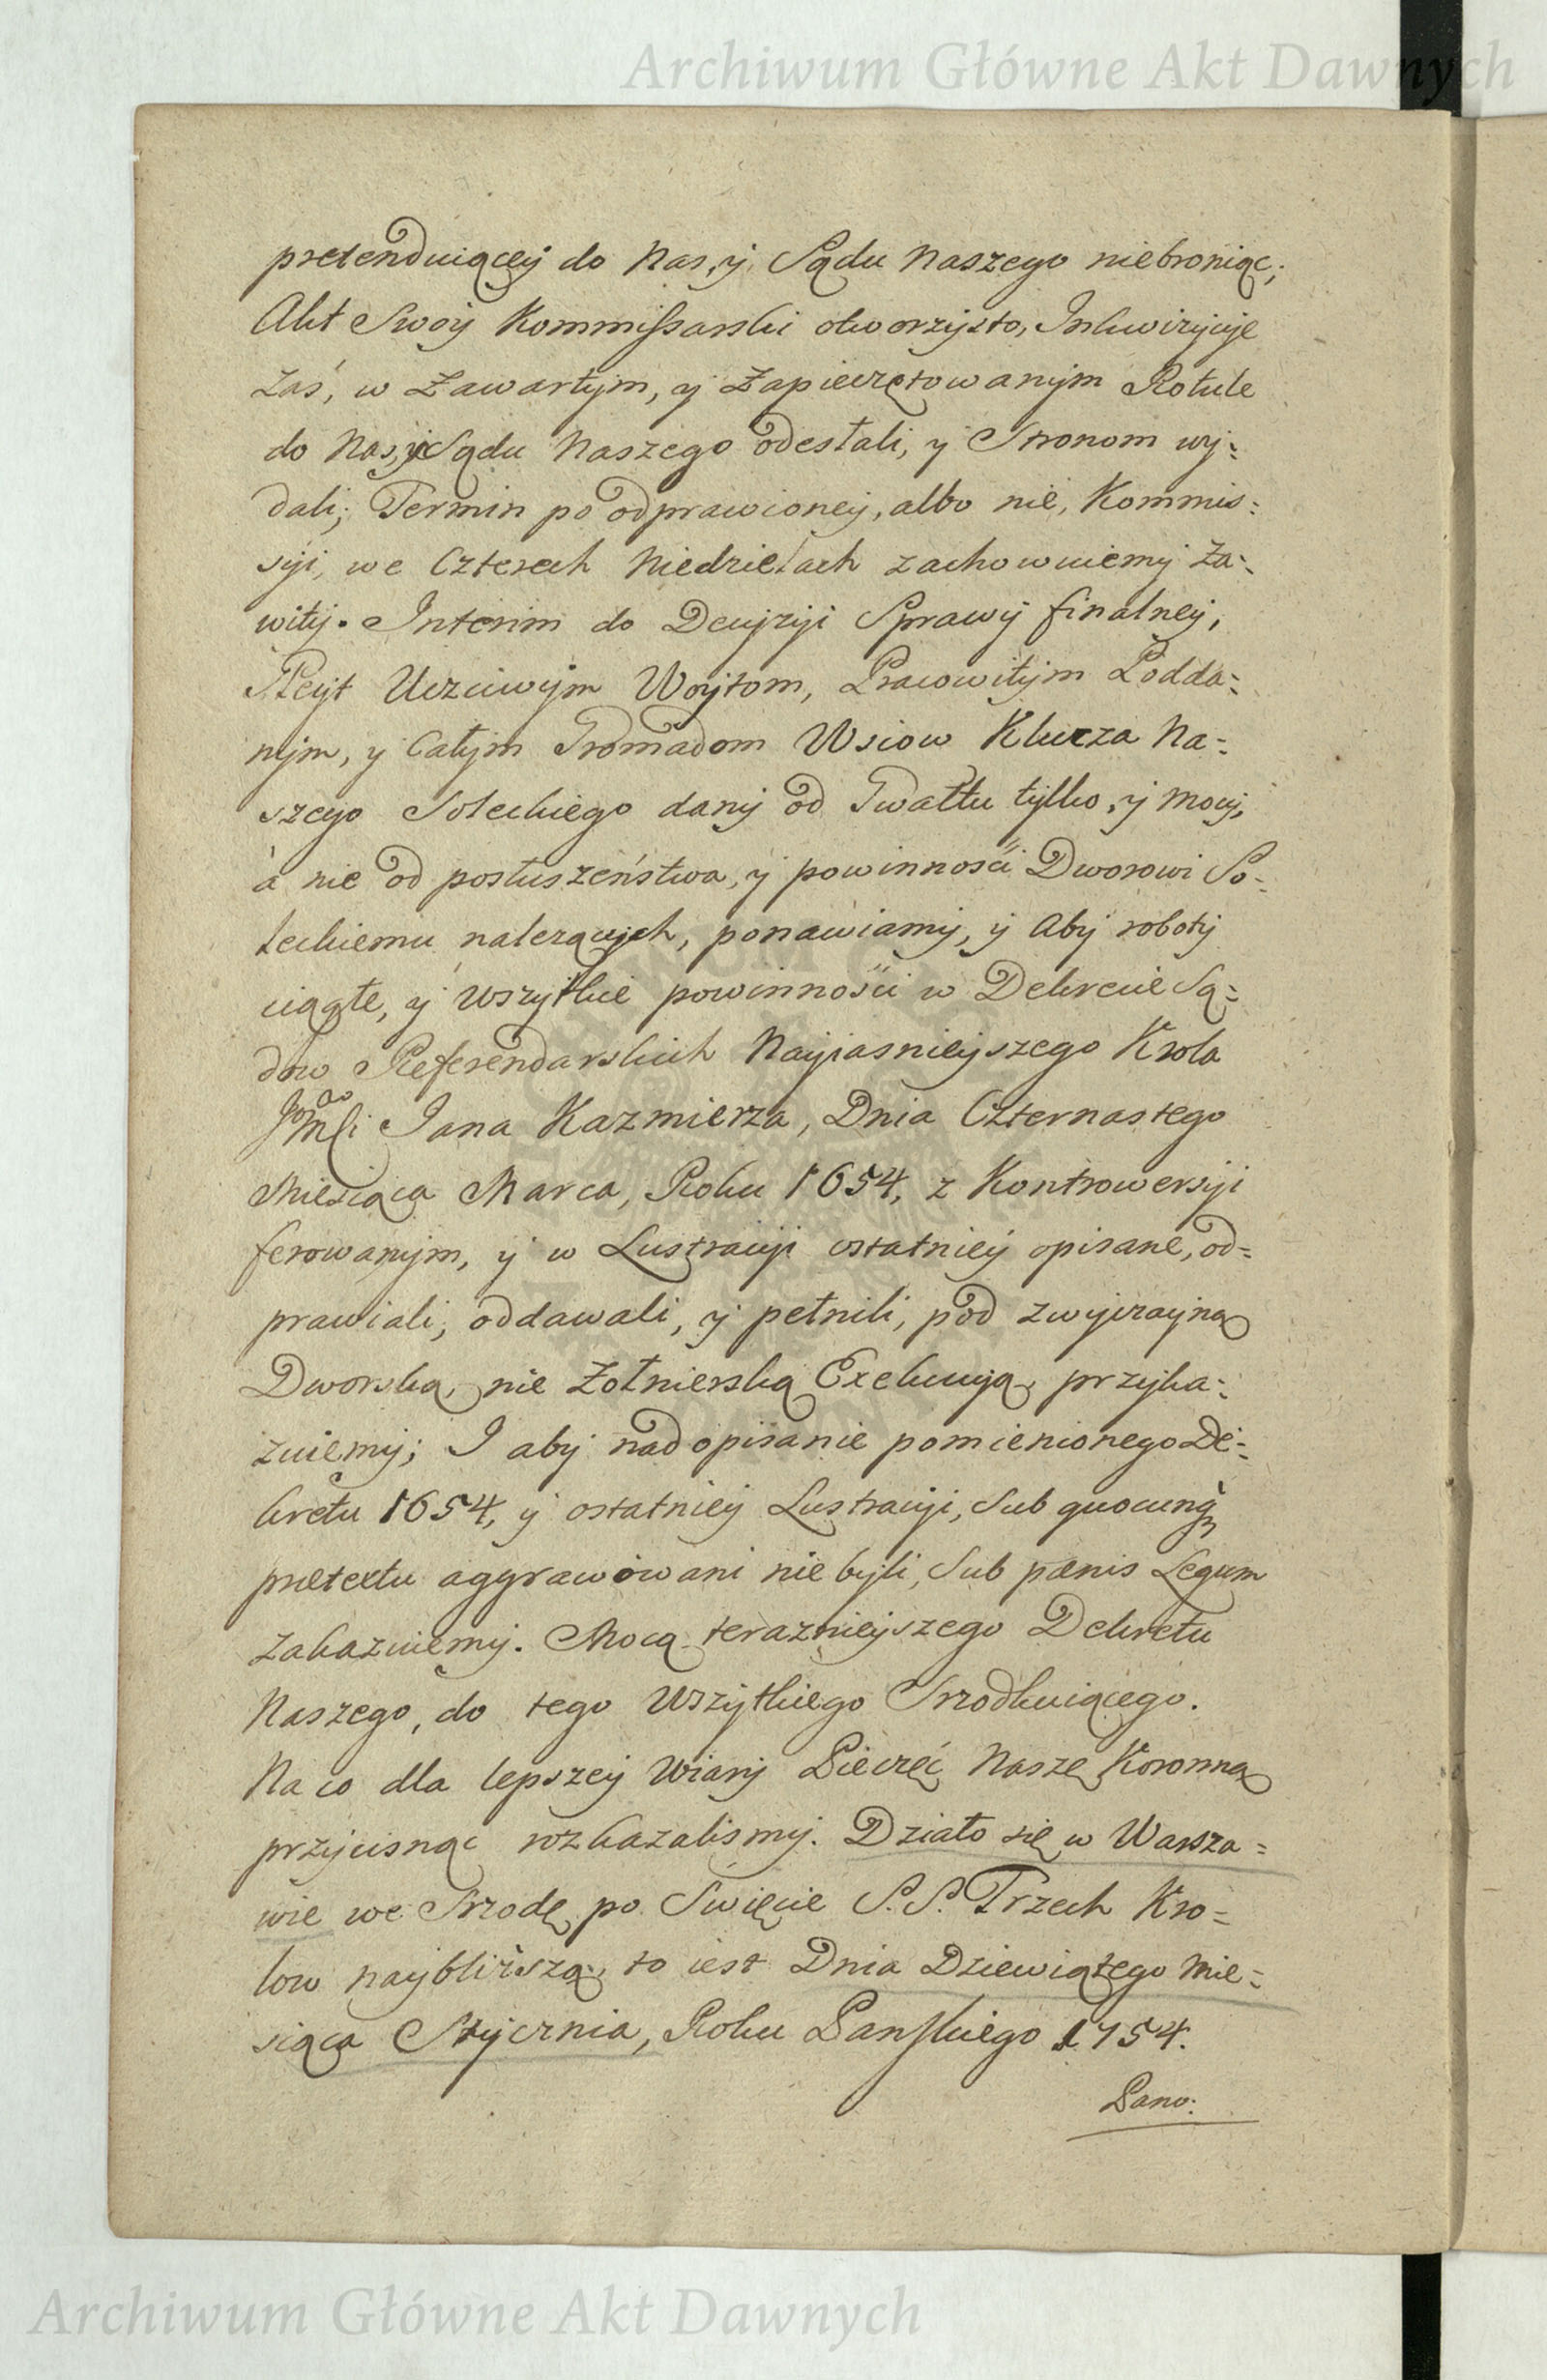 Archiwum Główne Akt Dawnych
pretenduiącey do Nas, y Sądu Naszego niebroniąc;
Akt Swoy Kommissarski otworzysto, Inkwizycye
Zaś, w Zawartym, y Zapieczętowanym Rotule
do Nas, y Sądu Naszego odesłali, y Stronom wy=
dali; Termin po odprawioney, albo nie, Kommis=
syi, we Czterech Niedzielach zachowuiemy Za=
wity. Interim do Decyzyi Sprawy finalney,
Gleyt Uczciwym Woytom, Pracowitym Podda=
nym, y Całym Gromadom Wsiow Klucza Na=
szego Soleckiego dany od Gwałtu tylko, y Mocy,
à nie od posłuszeństwa, y powinności Dworowi So=
leckiemu nalezących, ponawiamy, y Aby roboty
ciągłe, y Wszytkie powinności w Dekrecie Są=
dow Referendarskich Nayiasnieyszego Krola
Jmści Jana Kazmierza, Dnia Czternastego
Miesiąca Marca, Roku 1654, z Kontrowersyi
ferowanym, y w Lustracyi ostatniey opisane, od=
prawiali, oddawali, y pełnili, pod zwyczayną
Dworską, nie Żołnierską Exekucyą, przyka=
zuiemy; I aby nad opisanie pomienionego De=
kretu 1654, y ostatniey Lustracyi, Sub quocunq̃
pretextu aggrawowani nie byli, Sub pænis Legum
Zakazuiemy. Mocą teraznieyszego Dekretu
Naszego, do tego Wszytkiego Srzodkuiącego.
Na co dla lepszey Wiary Pieczęć Naszę Koronną
przycisnąc rozkazalismy. Działo się w Warsza=
wie we Srzodę po Swięcie S. S. Trzech Kro=
low naybliższą, to iest Dnia Dziewiątego Mie=
siąca Stycznia, Roku Panskiego 1754.
Pano:
Archiwum Główne Akt Dawnych